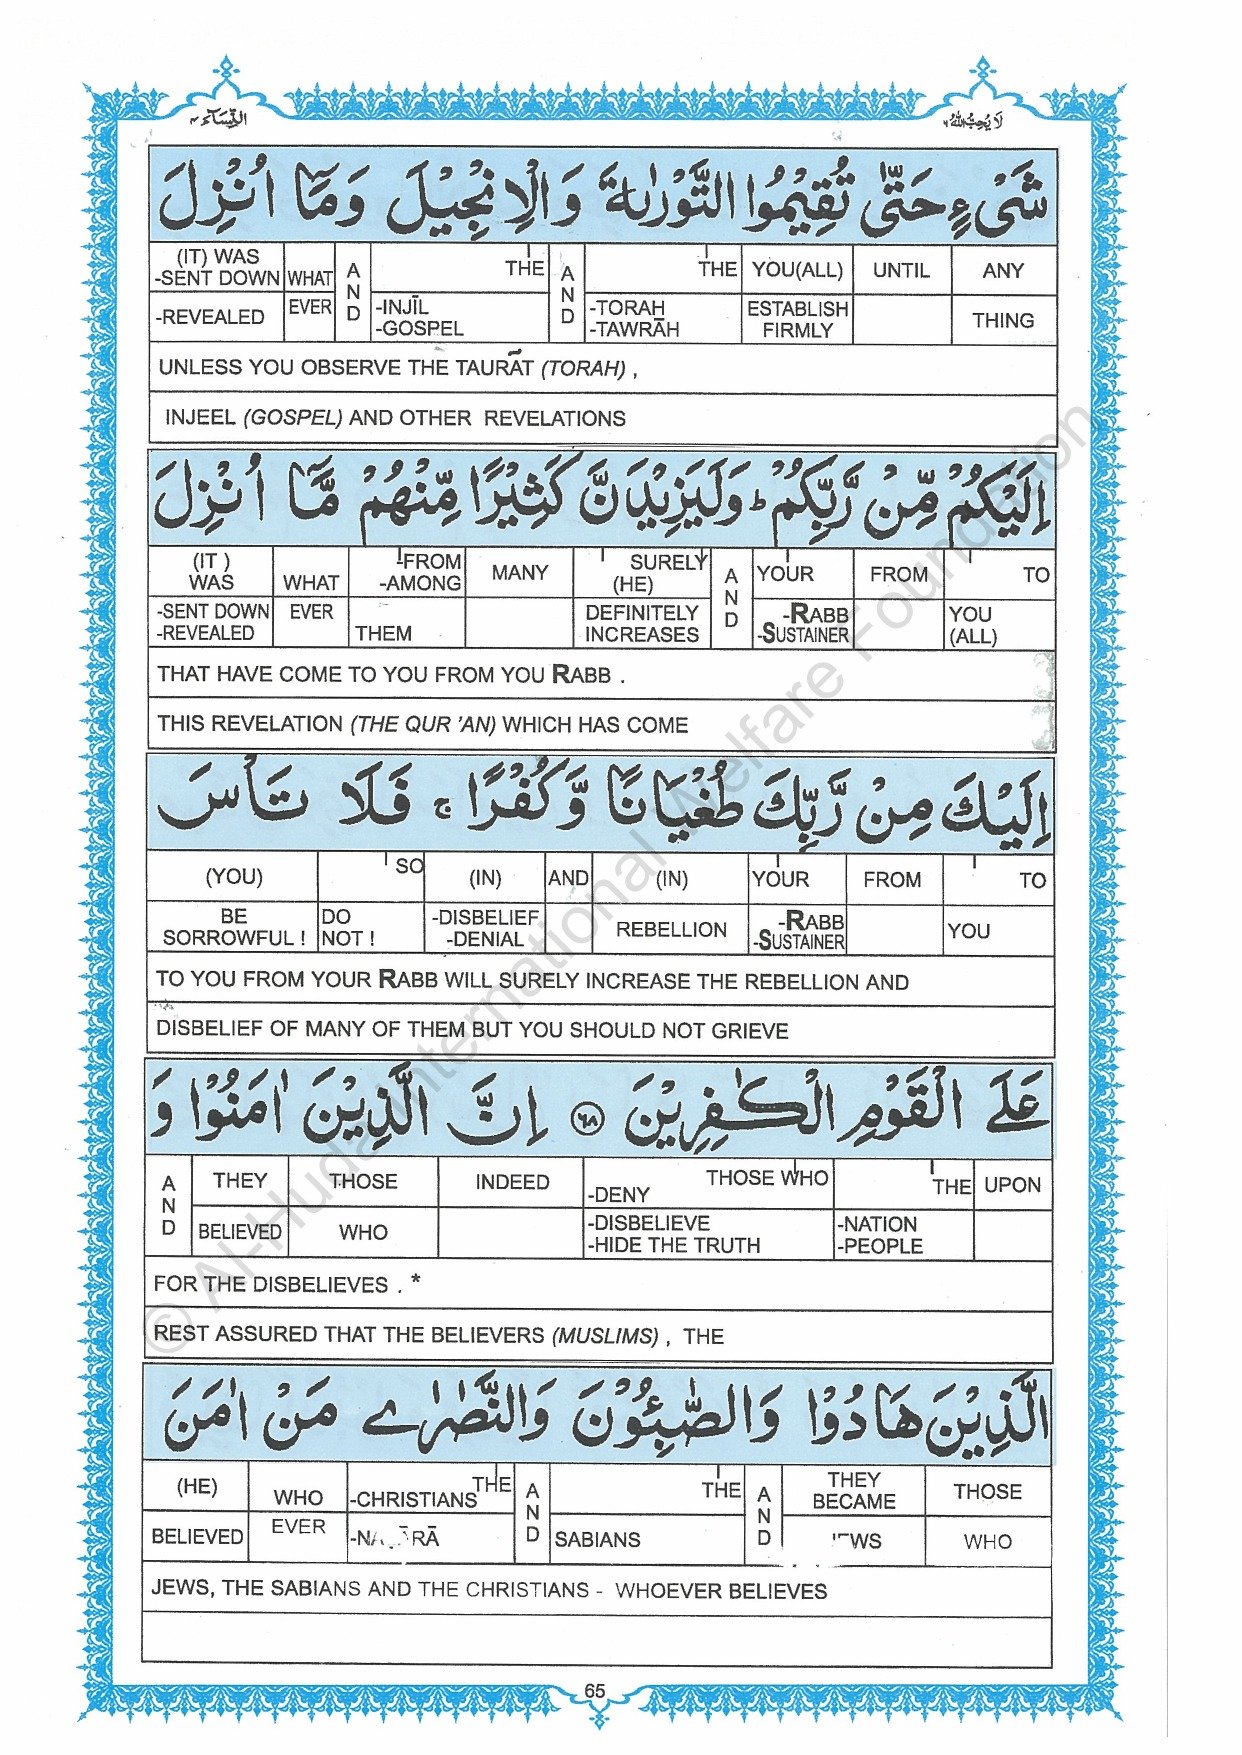 النِّسَآء ٤
لَا يُحِبُّ اللهُ ٦
شَىْءٍ حَتّٰى تُقِيْمُوا التَّوْرٰىةَ وَالْاِنْجِيْلَ وَمَآ اُنْزِلَ
(IT) WAS -SENT DOWN WHAT AND THE AND THE YOU(ALL) UNTIL ANY
-REVEALED EVER -INJĪL -GOSPEL -TORAH -TAWRĀH ESTABLISH FIRMLY THING
UNLESS YOU OBSERVE THE TAURĀT (TORAH) ,
INJEEL (GOSPEL) AND OTHER REVELATIONS
اِلَيْكُمْ مِّنْ رَّبِّكُمْ ؕ وَلَيَزِيْدَنَّ كَثِيْرًا مِّنْهُمْ مَّآ اُنْزِلَ
(IT ) WAS WHAT -FROM -AMONG MANY SURELY (HE) AND YOUR FROM TO
-SENT DOWN -REVEALED EVER THEM DEFINITELY INCREASES -RABB -SUSTAINER YOU (ALL)
THAT HAVE COME TO YOU FROM YOU RABB .
THIS REVELATION (THE QUR 'AN) WHICH HAS COME
اِلَيْكَ مِنْ رَّبِّكَ طُغْيَانًا وَّكُفْرًا ۚ فَلَا تَاْسَ
(YOU) SO (IN) AND (IN) YOUR FROM TO
BE SORROWFUL ! DO NOT ! -DISBELIEF -DENIAL REBELLION -RABB -SUSTAINER YOU
TO YOU FROM YOUR RABB WILL SURELY INCREASE THE REBELLION AND
DISBELIEF OF MANY OF THEM BUT YOU SHOULD NOT GRIEVE
عَلَى الْقَوْمِ الْكٰفِرِيْنَ ﴿٦٨﴾ اِنَّ الَّذِيْنَ اٰمَنُوْا وَ
AND THEY THOSE INDEED -DENY THOSE WHO THE UPON
BELIEVED WHO -DISBELIEVE -HIDE THE TRUTH -NATION -PEOPLE
FOR THE DISBELIEVES . *
REST ASSURED THAT THE BELIEVERS (MUSLIMS) , THE
الَّذِيْنَ هَادُوْا وَالصّٰبِـُٔوْنَ وَالنَّصٰرٰى مَنْ اٰمَنَ
(HE) WHO -CHRISTIANS THE AND THE AND THEY BECAME THOSE
BELIEVED EVER SABIANS WHO
JEWS, THE SABIANS AND THE CHRISTIANS - WHOEVER BELIEVES
65
© Al-Huda International Welfare Foundation